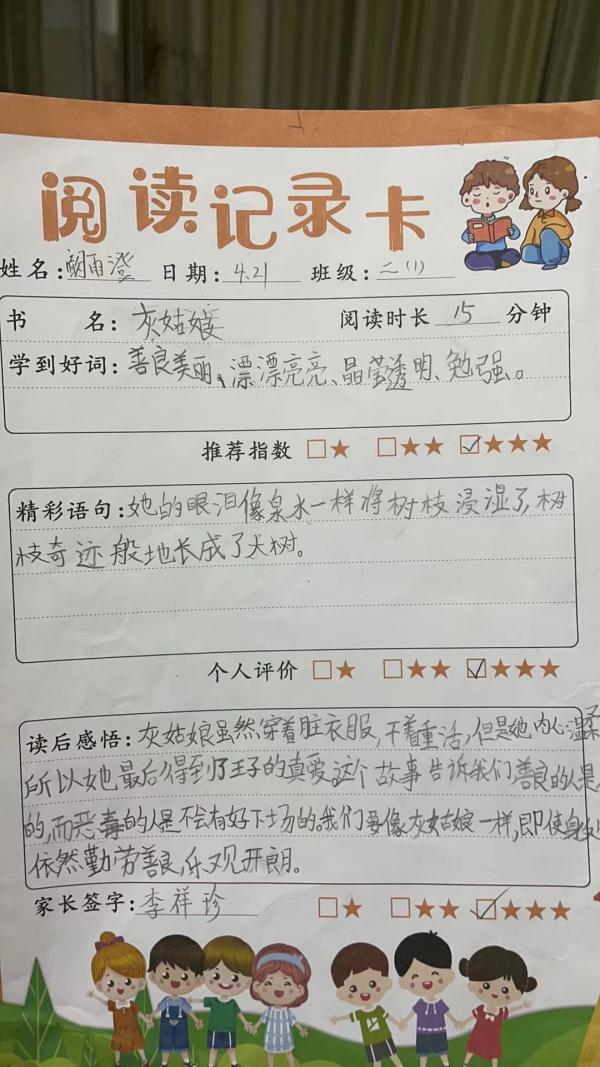 阅读记录卡
姓名: 雨澄 日期: 4.21 班级: 二(1)
书 名: 灰姑娘 阅读时长 15 分钟
学到好词: 善良美丽、漂漂亮亮、晶莹透明、勉强。
推荐指数 □★ □★★ ☑★★★
精彩语句: 她的眼泪像泉水一样将树枝浸湿了,树
枝奇迹般地长成了大树。
个人评价 □★ □★★ ☑★★★
读后感悟: 灰姑娘虽然穿着脏衣服,干着重活,但是她内心温柔
所以她最后得到了王子的真爱。这个故事告诉我们善良的人是
的,而恶毒的人是不会有好下场的。我们要像灰姑娘一样,即使身
依然勤劳善良,乐观开朗。
家长签字: 李祥珍 □★ □★★ ☑★★★